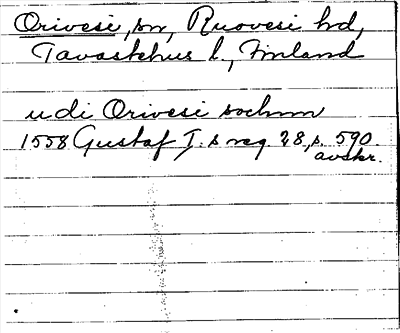 Orivesi, sn, Ruovesi hd,
Tavastehus l., Finland
u di Orivesi sochnn
1558 Gustaf I:s reg. 28, s. 590.
avskr.